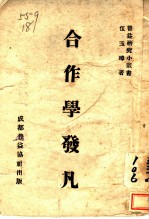 559
18
普益研究小叢書
伍玉璋著
合作學發凡
成都普益協社出版
106